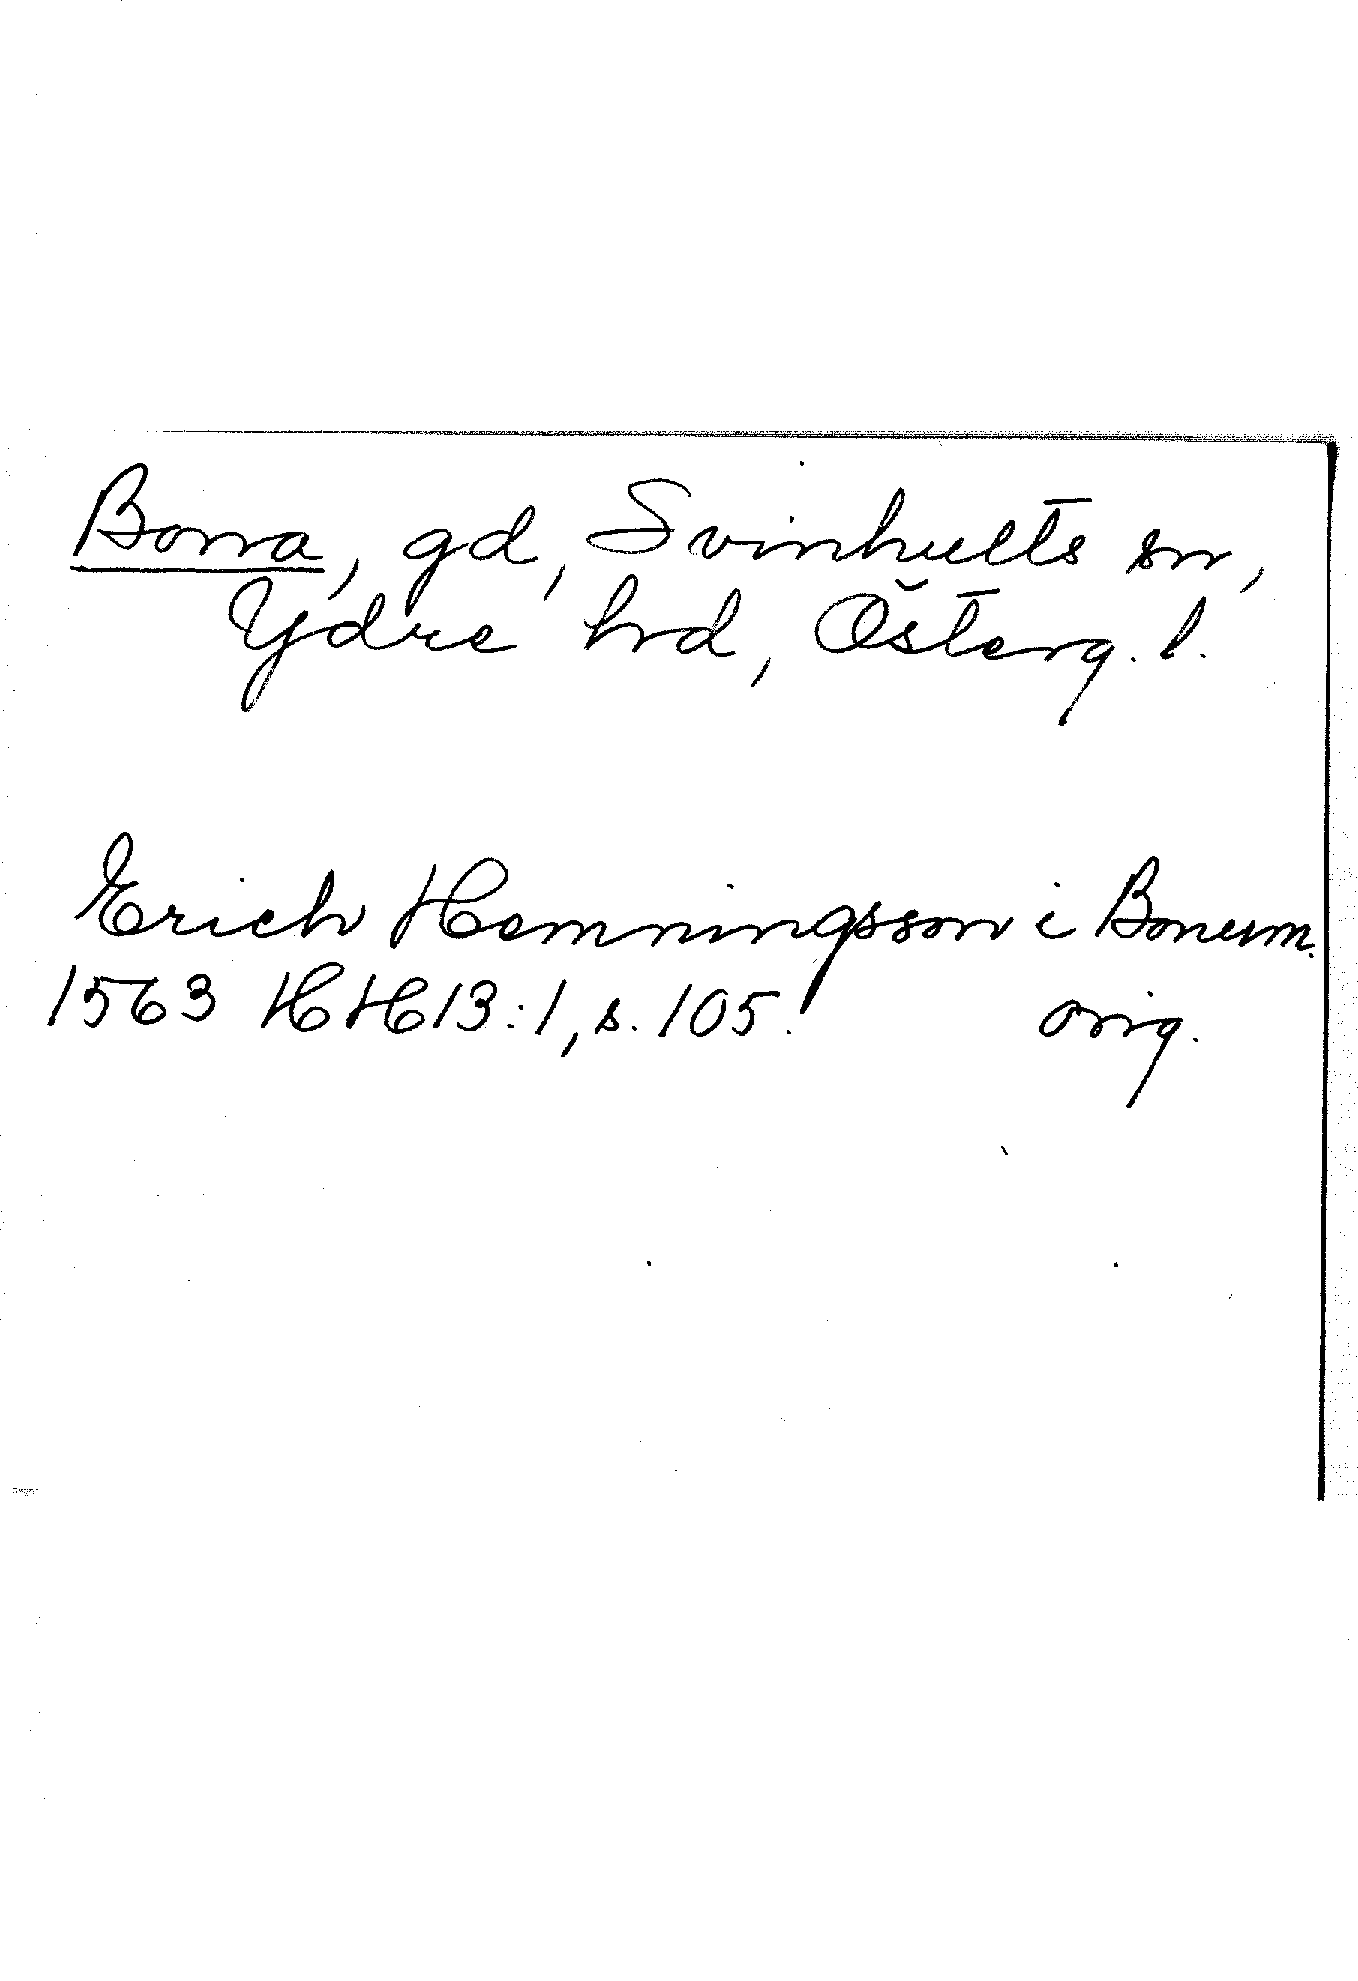 Bona, gd, Svinhults sn,
Ydre hrd, Österg. l.
Erich Hemmingsson i Boneum.
1563 HH13:1, s. 105. orig.